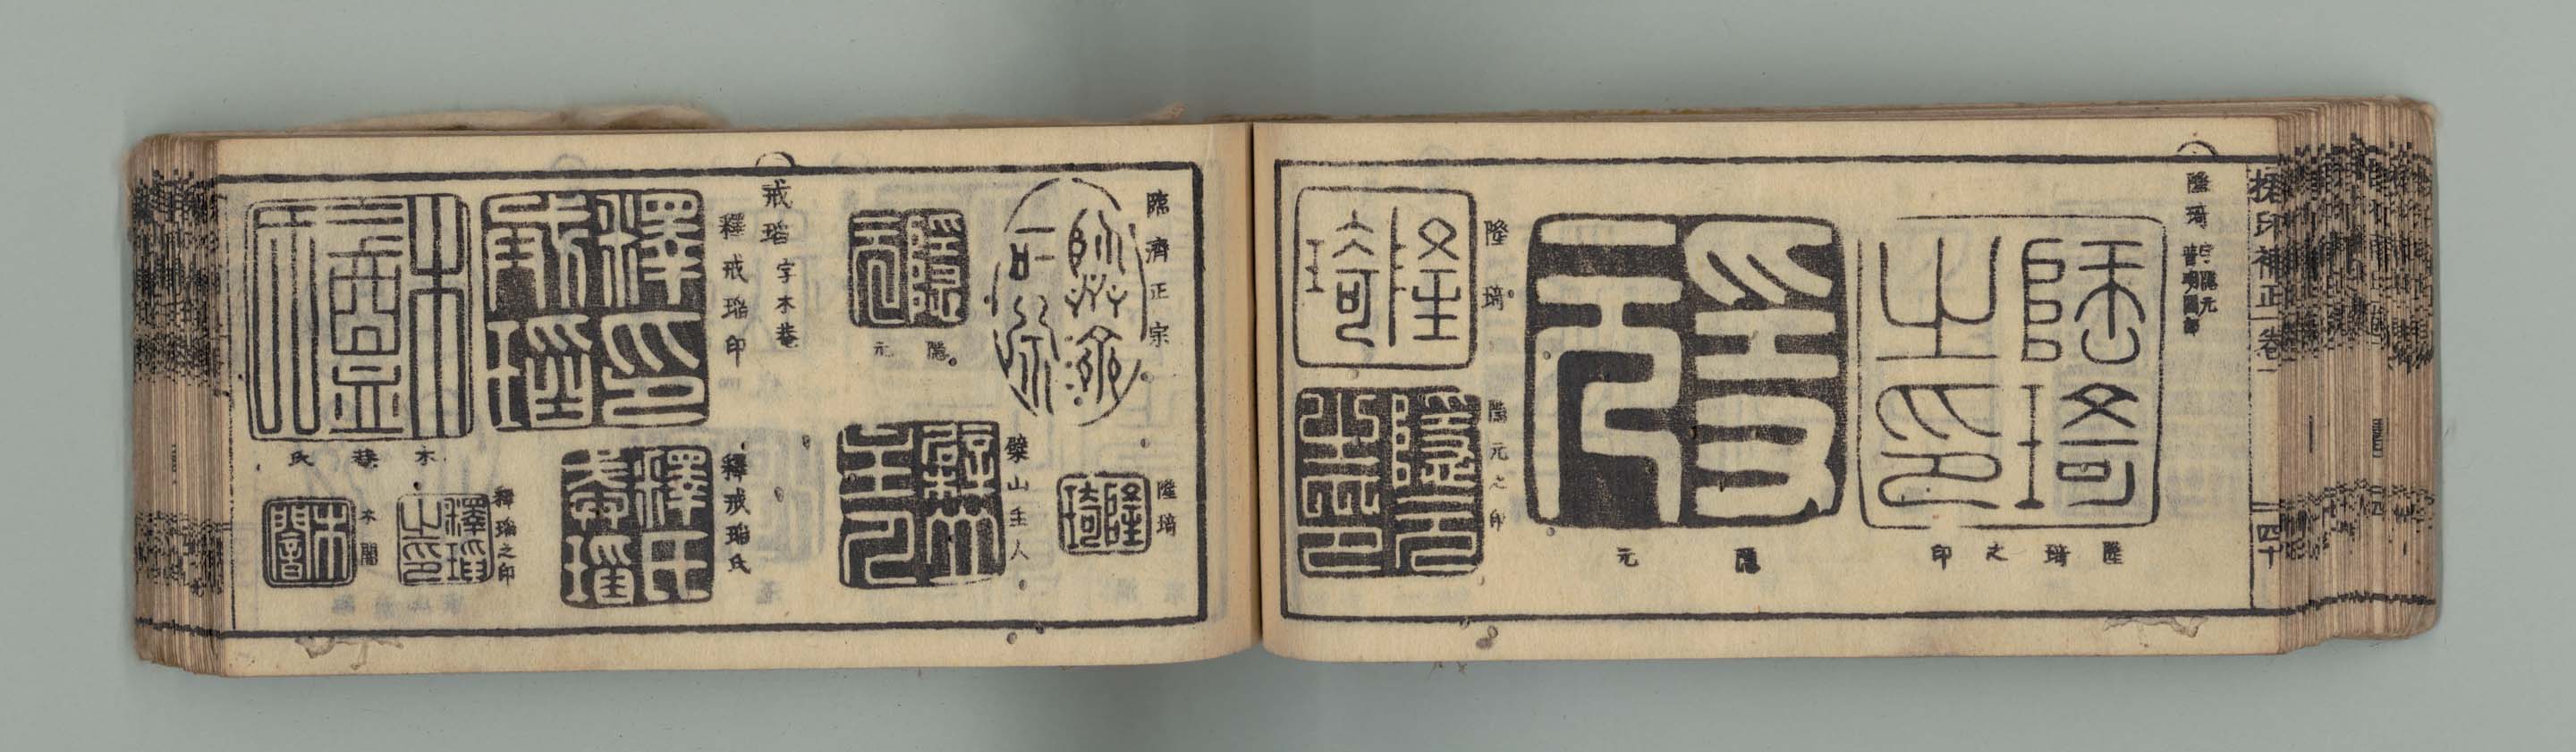 捃印補正卷一
四十
隆琦 字隱元
普明國師
隆琦之印
隱元
隆琦
隱元之印
臨濟正宗
隆琦
隱元
檗山主人
戒瑫 字木菴
釋戒瑫印
釋戒瑫氏
木菴氏
釋瑫之印
木闇